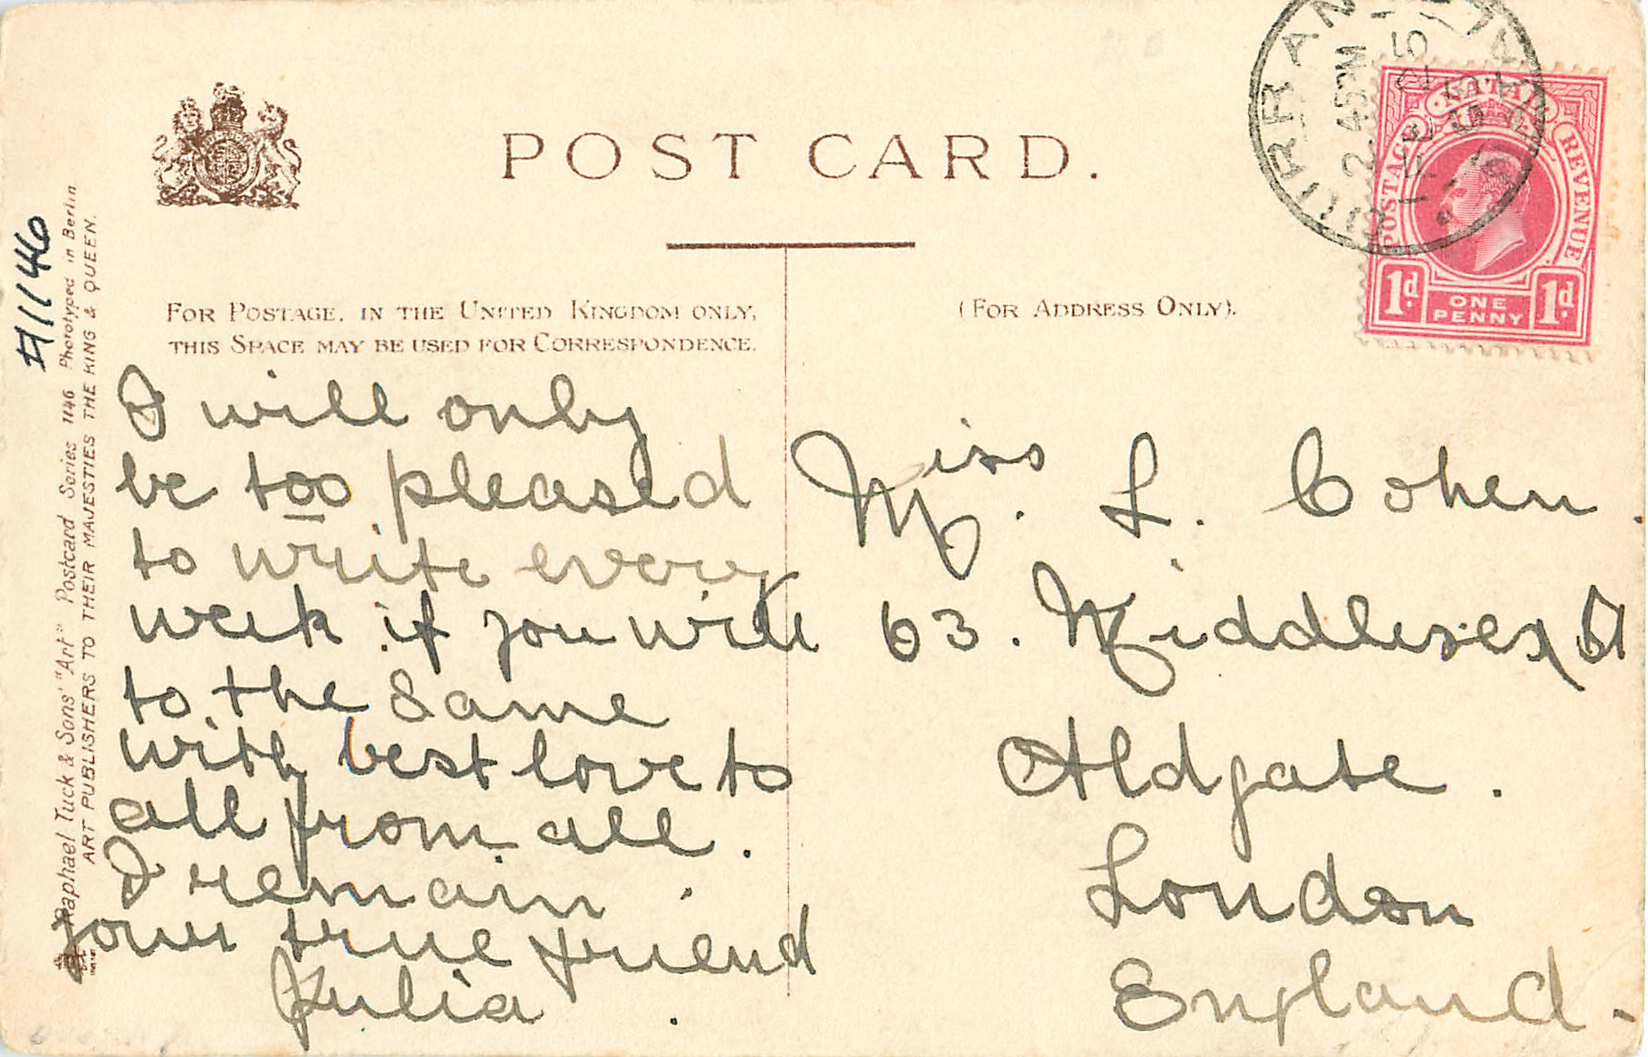 POST CARD.
FOR POSTAGE, IN THE UNITED KINGDOM ONLY,
THIS SPACE MAY BE USED FOR CORRESPONDENCE.
(FOR ADDRESS ONLY).
I will only
be too pleased
to write every
week if you will
to the same
with best love to
all from all.
I remain
your true friend
Julia.
Miss. L. Cohen.
63. Middlesex St
Aldgate.
London
England.
NATAL
POSTAGE
REVENUE
1d
ONE
PENNY
1d
2.45PM
FE
05
A1146
Raphael Tuck & Sons' "Art" Postcard Series 1146 Phototyped in Berlin.
ART PUBLISHERS TO THEIR MAJESTIES THE KING & QUEEN.